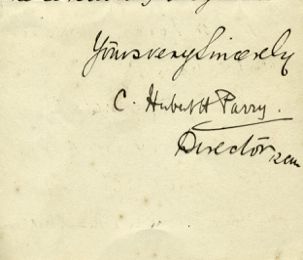 Yours very Sincerely
C. Hubert H Parry.
Director RCM